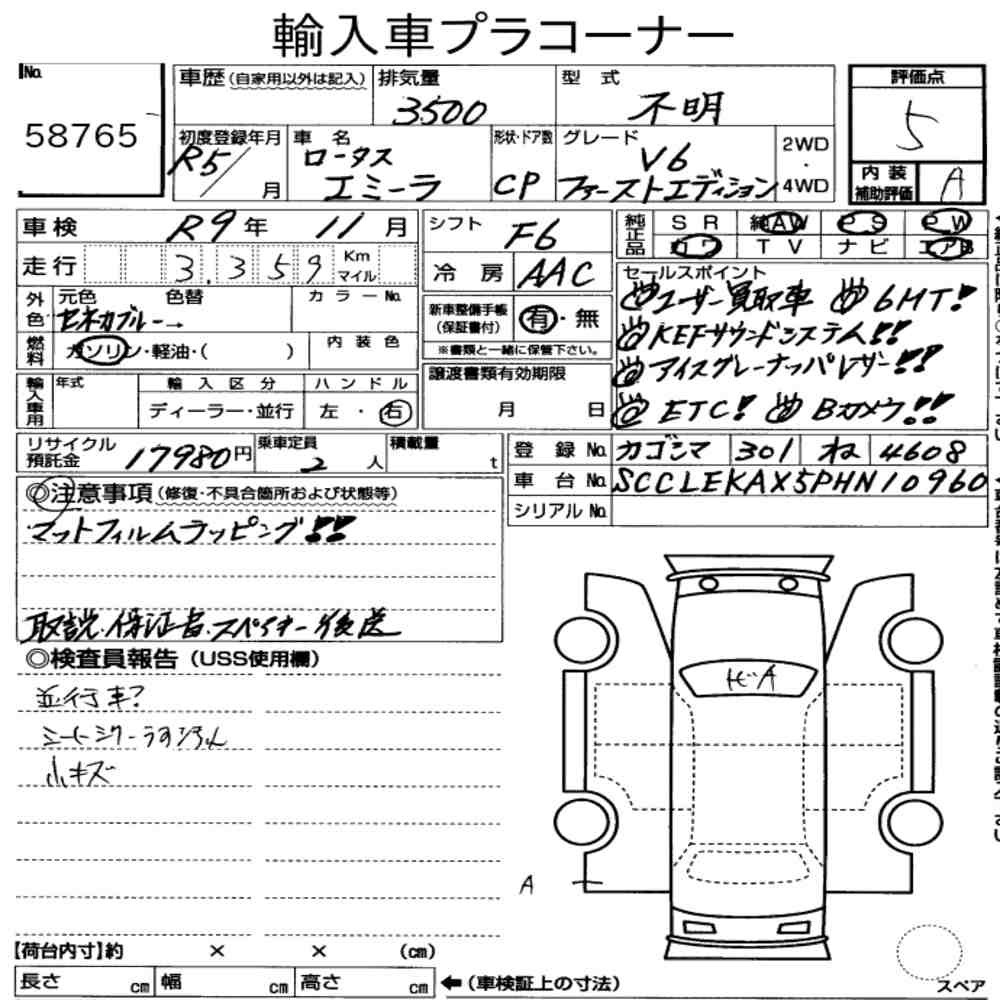 輸入車プラコーナー
No. 58765
車歴(自家用以外は記入) 排気量 3500 型式 不明
評価点 5
初度登録年月 R5/ 月 車名 ロータス エミーラ 形状・ドア数 CP グレード V6 ファーストエディション 2WD・4WD
内装補助評価 A
車検 R9年 11月 シフト F6 純正品 SR 純AW PS PW
カワ TV ナビ エアB
走行 3,359 Km マイル 冷房 AAC
セールスポイント
外色 元色 色替 カラーNo. セネカブルー→
新車整備手帳(保証書付) 有・無
※書類と一緒に保管下さい。
ユーザー買取車 6MT!
KEFサウンドシステム!!
アイスグレーナッパレザー!!
ETC! Bカメラ!!
燃料 ガソリン・軽油・( ) 内装色
譲渡書類有効期限 月 日
輸入車用 年式 輸入区分 ディーラー・並行 ハンドル 左・右
リサイクル預託金 17980円 乗車定員 2人 積載量 t
登録No. カゴシマ 301 ね 4608
車台No. SCCLEKAX5PHN10960
シリアルNo.
◎注意事項(修復・不具合箇所および状態等)
マットフィルムラッピング!!
取説・保証書・スペアキー後送
◎検査員報告(USS使用欄)
並行車?
シートシワ
小キズ
トビA
A
【荷台内寸】約 × × (cm)
長さ cm 幅 cm 高さ cm ←(車検証上の寸法)
スペア